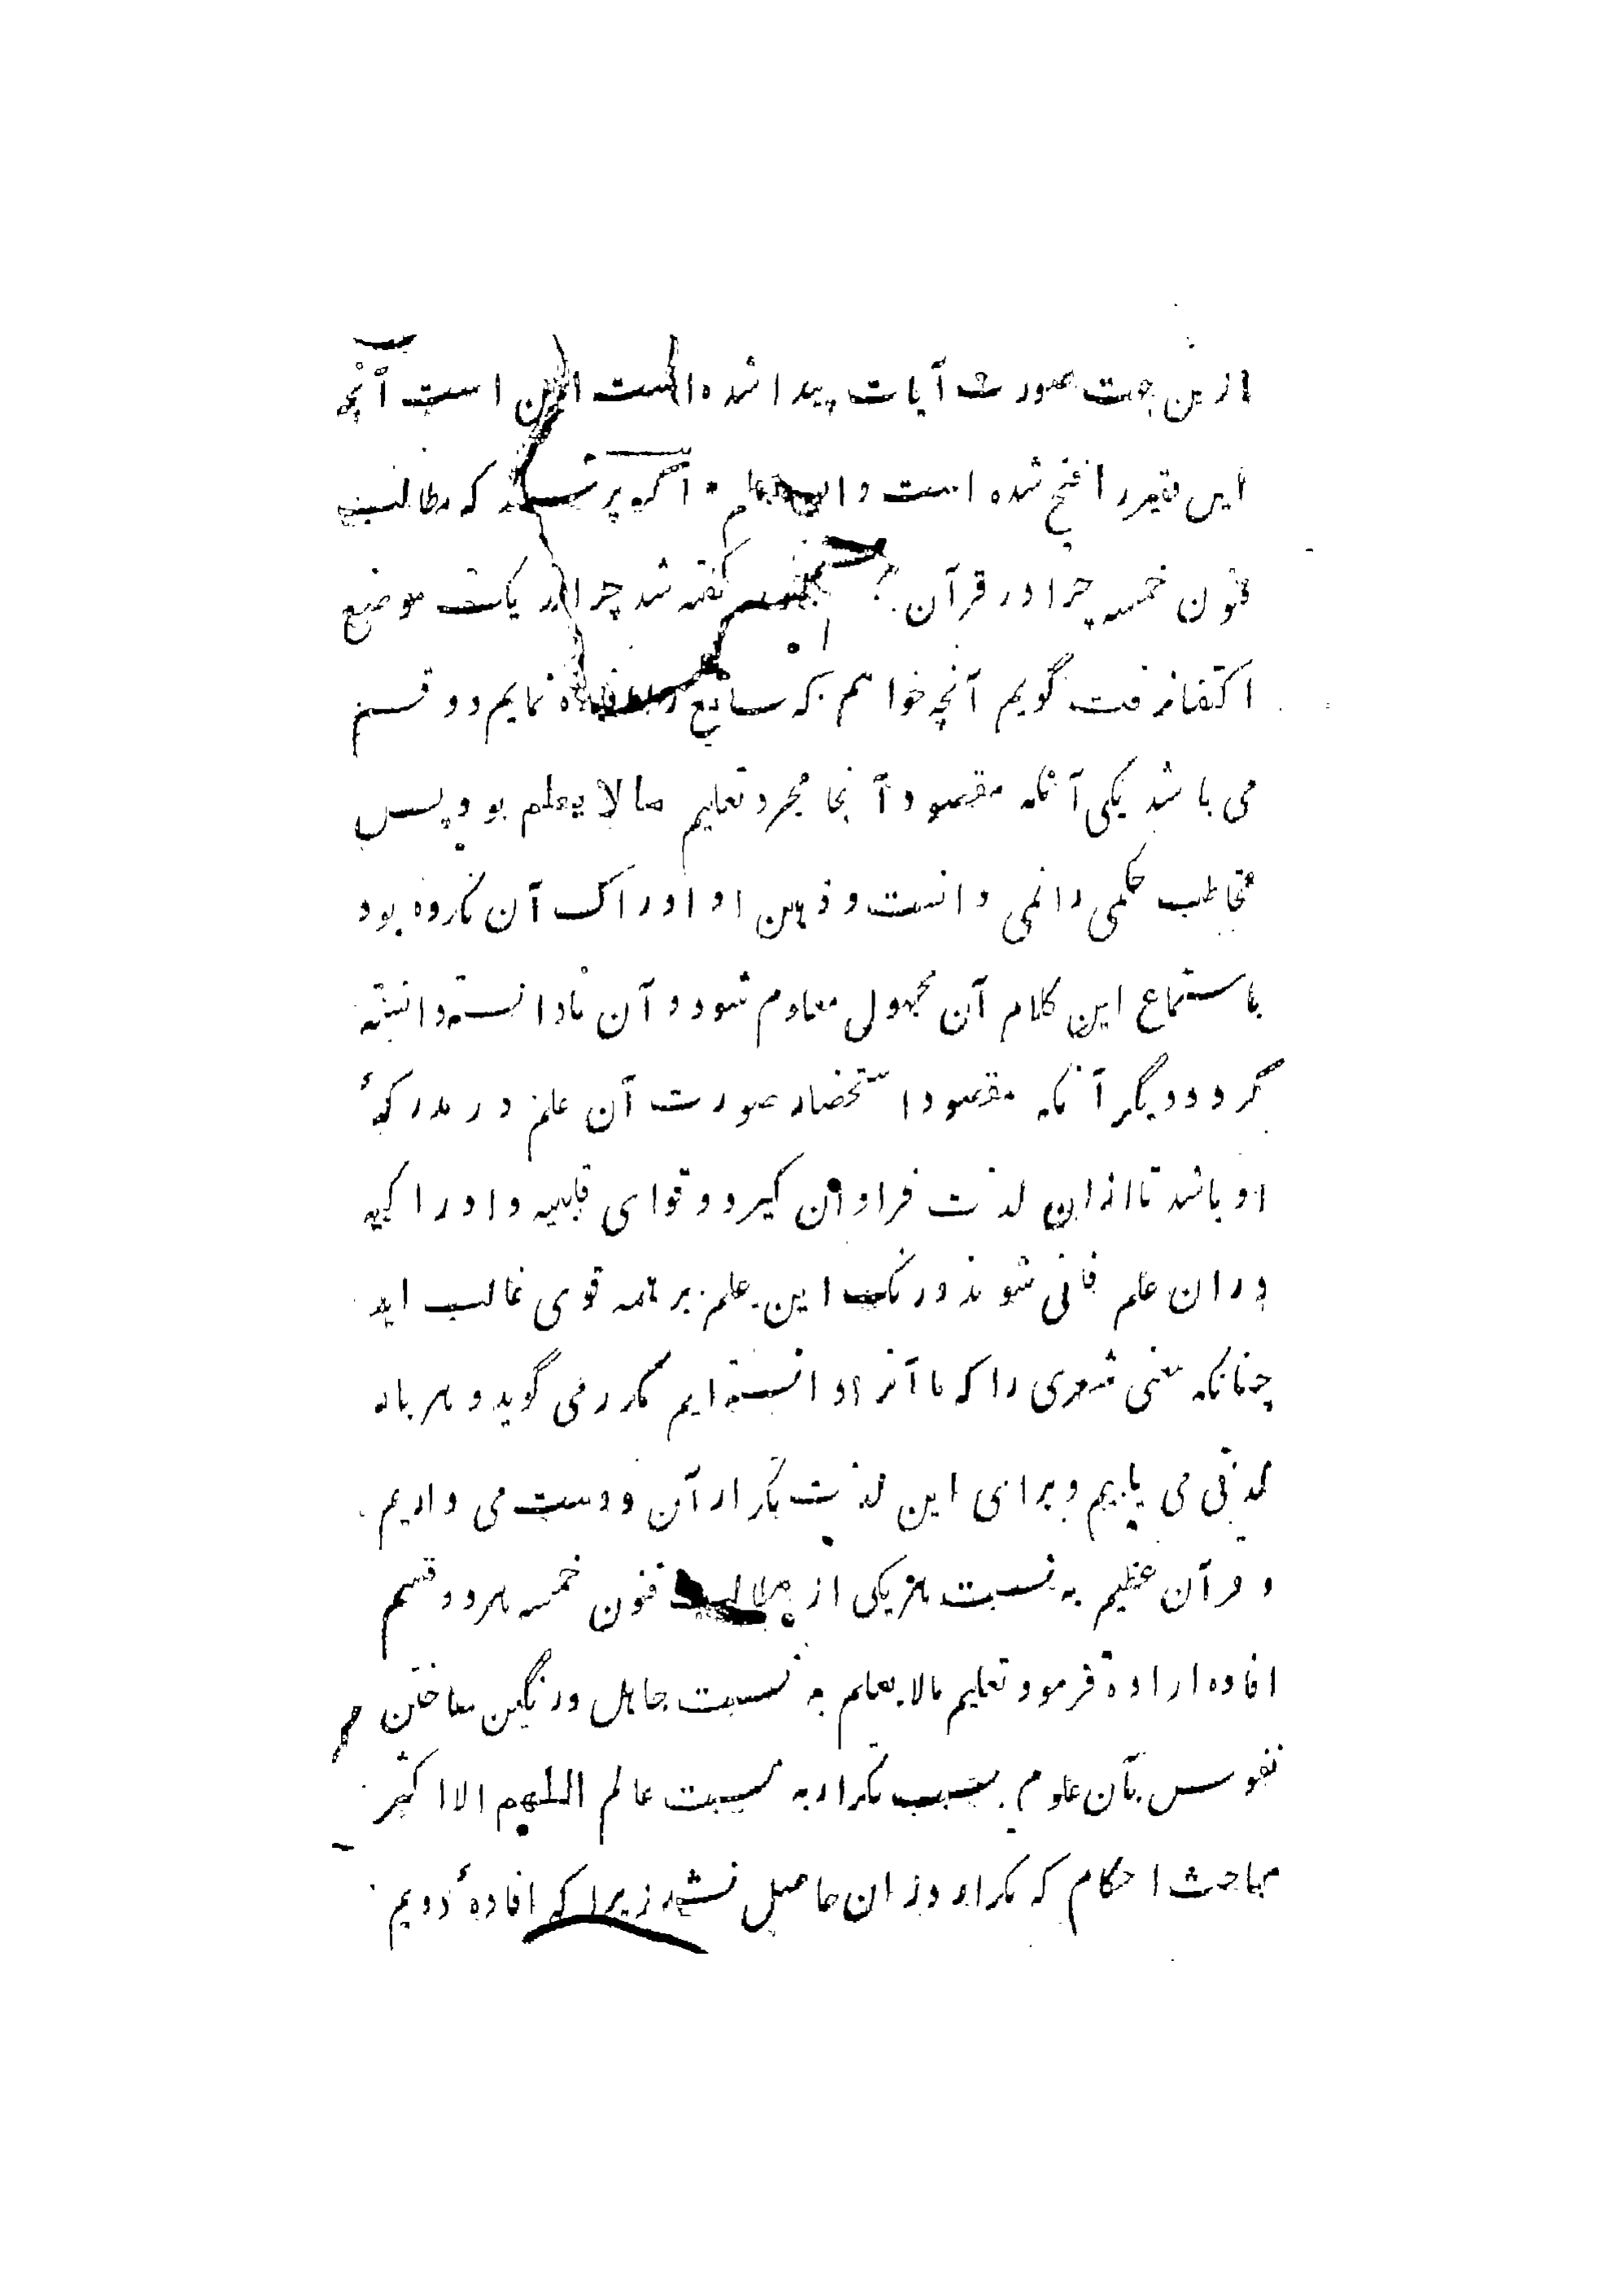 ازین جهت صورت آیات پیدا شده است این است آنچه
این فقیر را فتح شده است والله اعلم ٠ اگر پرسند که مطالب
فنون خمسه چرا در قرآن گفته شد چرا در یک موضع
اکتفا نرفت گویم آنچه خواهم که سامع را افاده نمایم دو قسم
می باشد یکی آنکه مقصود آنجا مجرد تعلیم ما لا یعلم بود پس
مخاطب حکمی را نمی دانست و ذهن او ادراک آن نکرده بود
باستماع این کلام آن مجهول معلوم شود و آن نادانسته دانسته
گردد و دیگر آنکه مقصود استحضار صورت آن علم در مدرکهٔ
او باشد تا ازان لذت فراوان گیرد و قوای قلبیه و ادراکیه
دران علم فانی شوند و رنگ این علم بر همه قوی غالب اید
چنانکه معنی شعری را که ما آنرا دانسته ایم مکرر می گوید و هر بار
لذتی می یابیم و برای این لذت تکرار آن دوست می داریم
و قرآن عظیم به نسبت هر یکی از مطالب فنون خمسه هر دو قسم
افاده اراده فرمود تعلیم ما لا یعلم به نسبت جاهل و رنگین ساختن
نفوس بآن علوم بسبب تکرار به نسبت عالم اللهم الا اکثر
مباحث احکام که تکرار دران حاصل نشد زیرا که افادهٔ دویم